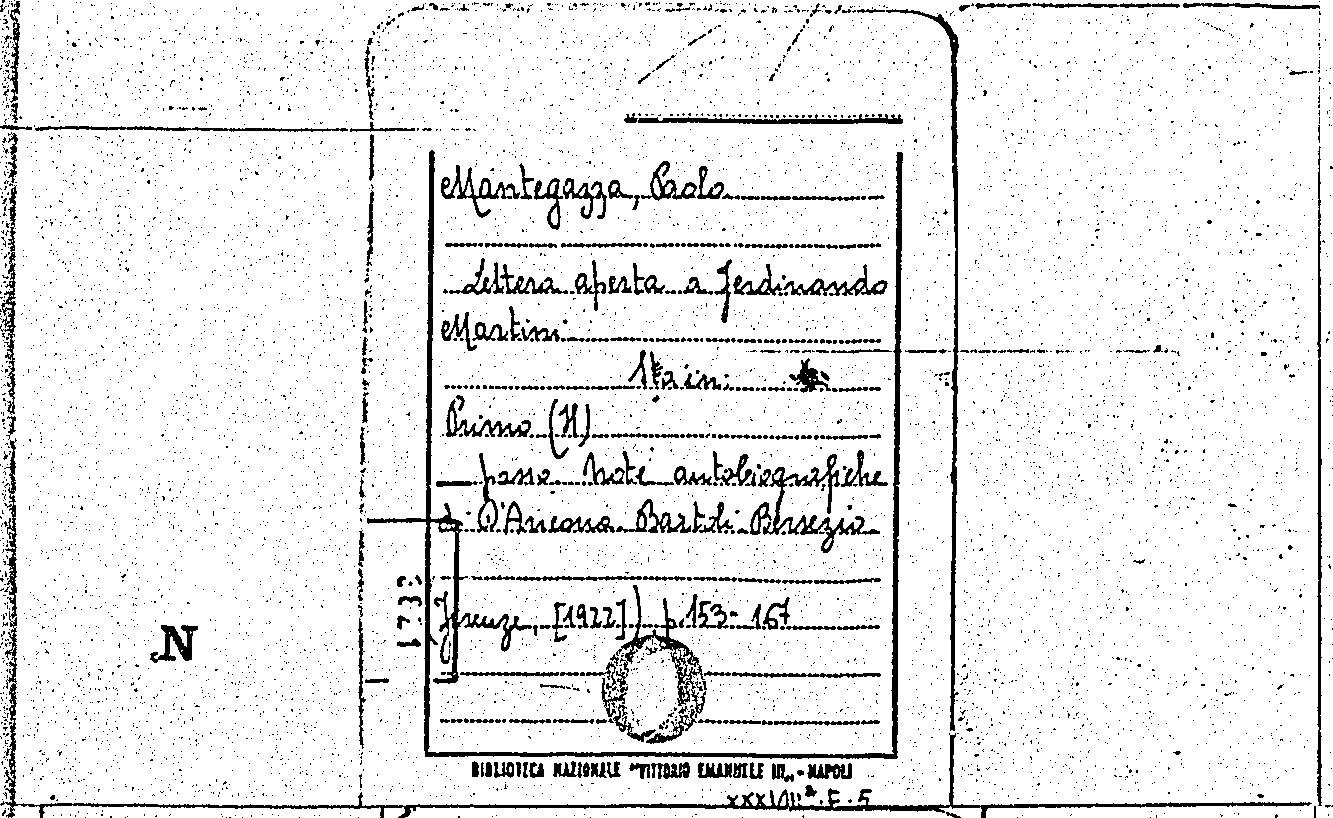 Mantegazza, Paolo
Lettera aperta a Ferdinando
Martini
Sta in:
Primo (Il)
passo. Note autobiografiche
di D'Ancona. Bartoli. Bersezio.
Firenze, [1922]) p. 153-167
1733
N
BIBLIOTECA NAZIONALE "VITTORIO EMANUELE III„ - NAPOLI